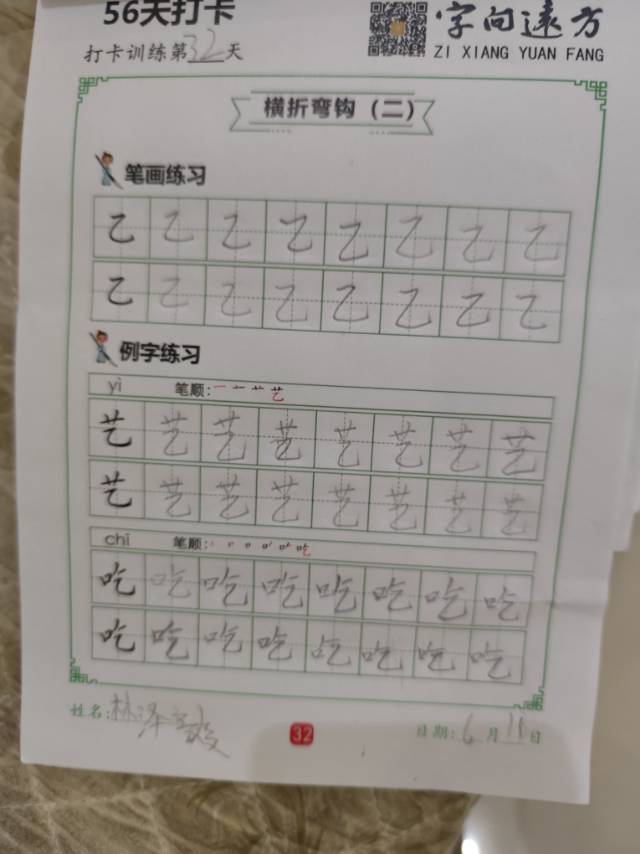 56天打卡
字向远方
打卡训练第32天
ZI XIANG YUAN FANG
横折弯钩（二）
笔画练习
乙 乙 乙 乙 乙 乙 乙 乙
乙 乙 乙 乙 乙 乙 乙 乙
例字练习
yì 笔顺: 一 十 艹 艺
艺 艺 艺 艺 艺 艺 艺 艺
艺 艺 艺 艺 艺 艺 艺 艺
chī 笔顺:
吃 吃 吃 吃 吃 吃 吃 吃
吃 吃 吃 吃 吃 吃 吃 吃
姓名:林泽
32
日期:6月11日